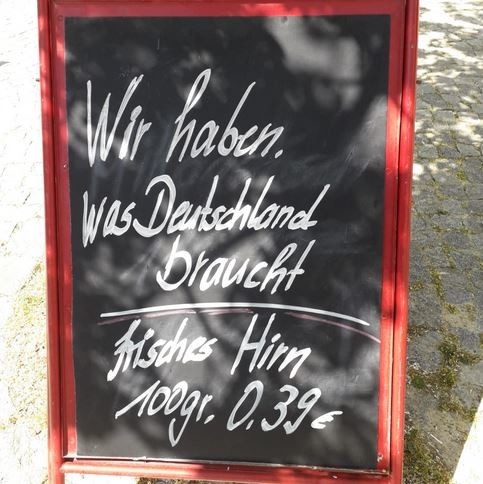 Wir haben.
was Deutschland
braucht
frisches Hirn
100gr. 0.39€